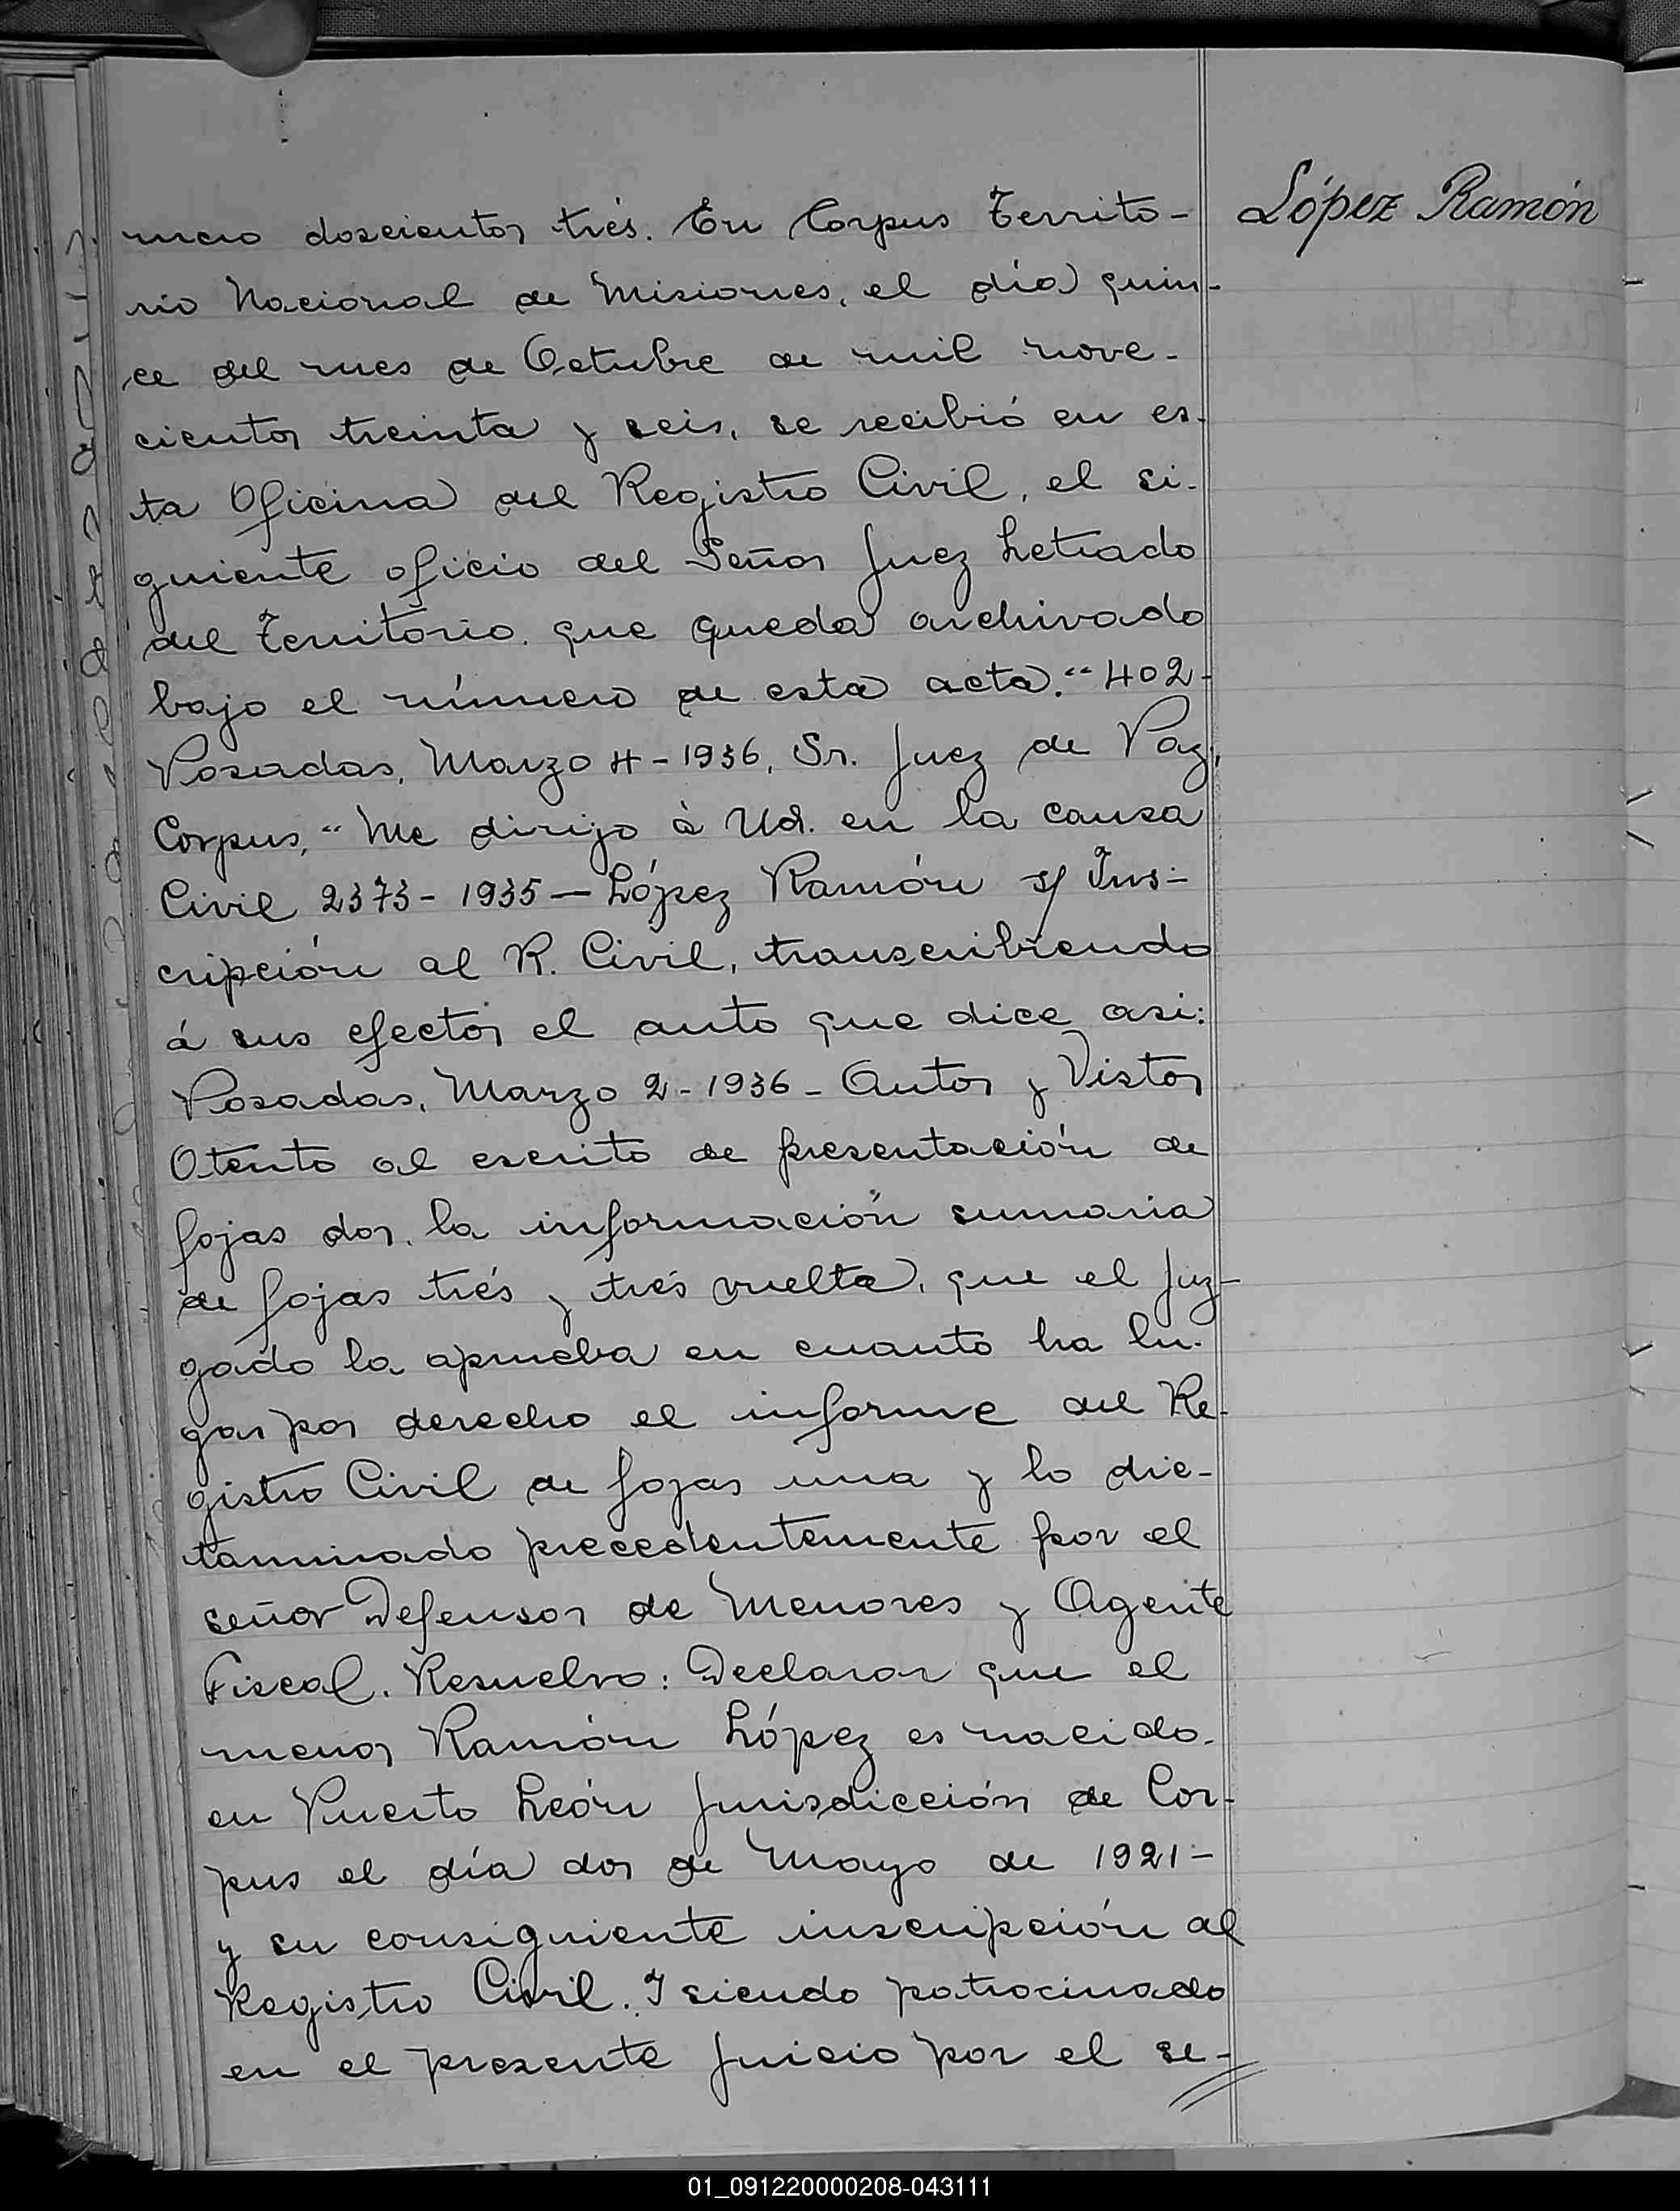 mero doscientos trés. En Corpus Territo-
rio Nacional de Misiones, el día quin-
ce del mes de Octubre de mil nove-
cientos treinta y seis, se recibió en es-
ta Oficina del Registro Civil, el si-
guiente oficio del Señor Juez Letrado
del Territorio. que queda archivado
bajo el número de esta acta. "402-
Posadas, Marzo 4-1936, Sr. Juez de Paz,
Corpus, "Me dirijo à Ud. en la causa
Civil 2373-1935 - López Ramón s/ Ins-
cripción al R. Civil, transcribiendo
á sus efectos el auto que dice asi:
Posadas, Marzo 2-1936 - Autos y Vistos
Atento al escrito de presentación de
fojas dos, la información sumaria
de fojas trés y trés vuelta, que el Juz-
gado la aprueba en cuanto ha lu-
gar por derecho el informe del Re-
gistro Civil de fojas una y lo dic-
taminado precedentemente por el
señor Defensor de Menores y Agente
Fiscal. Resuelvo: Declarar que el
menor Ramón López es nacido.
en Puerto León Jurisdicción de Cor-
pus el día dos de Mayo de 1921-
y su consiguiente inscripción al
Registro Civil. I siendo patrocinado
en el presente Juicio por el se-
López Ramón
01_091220000208-043111